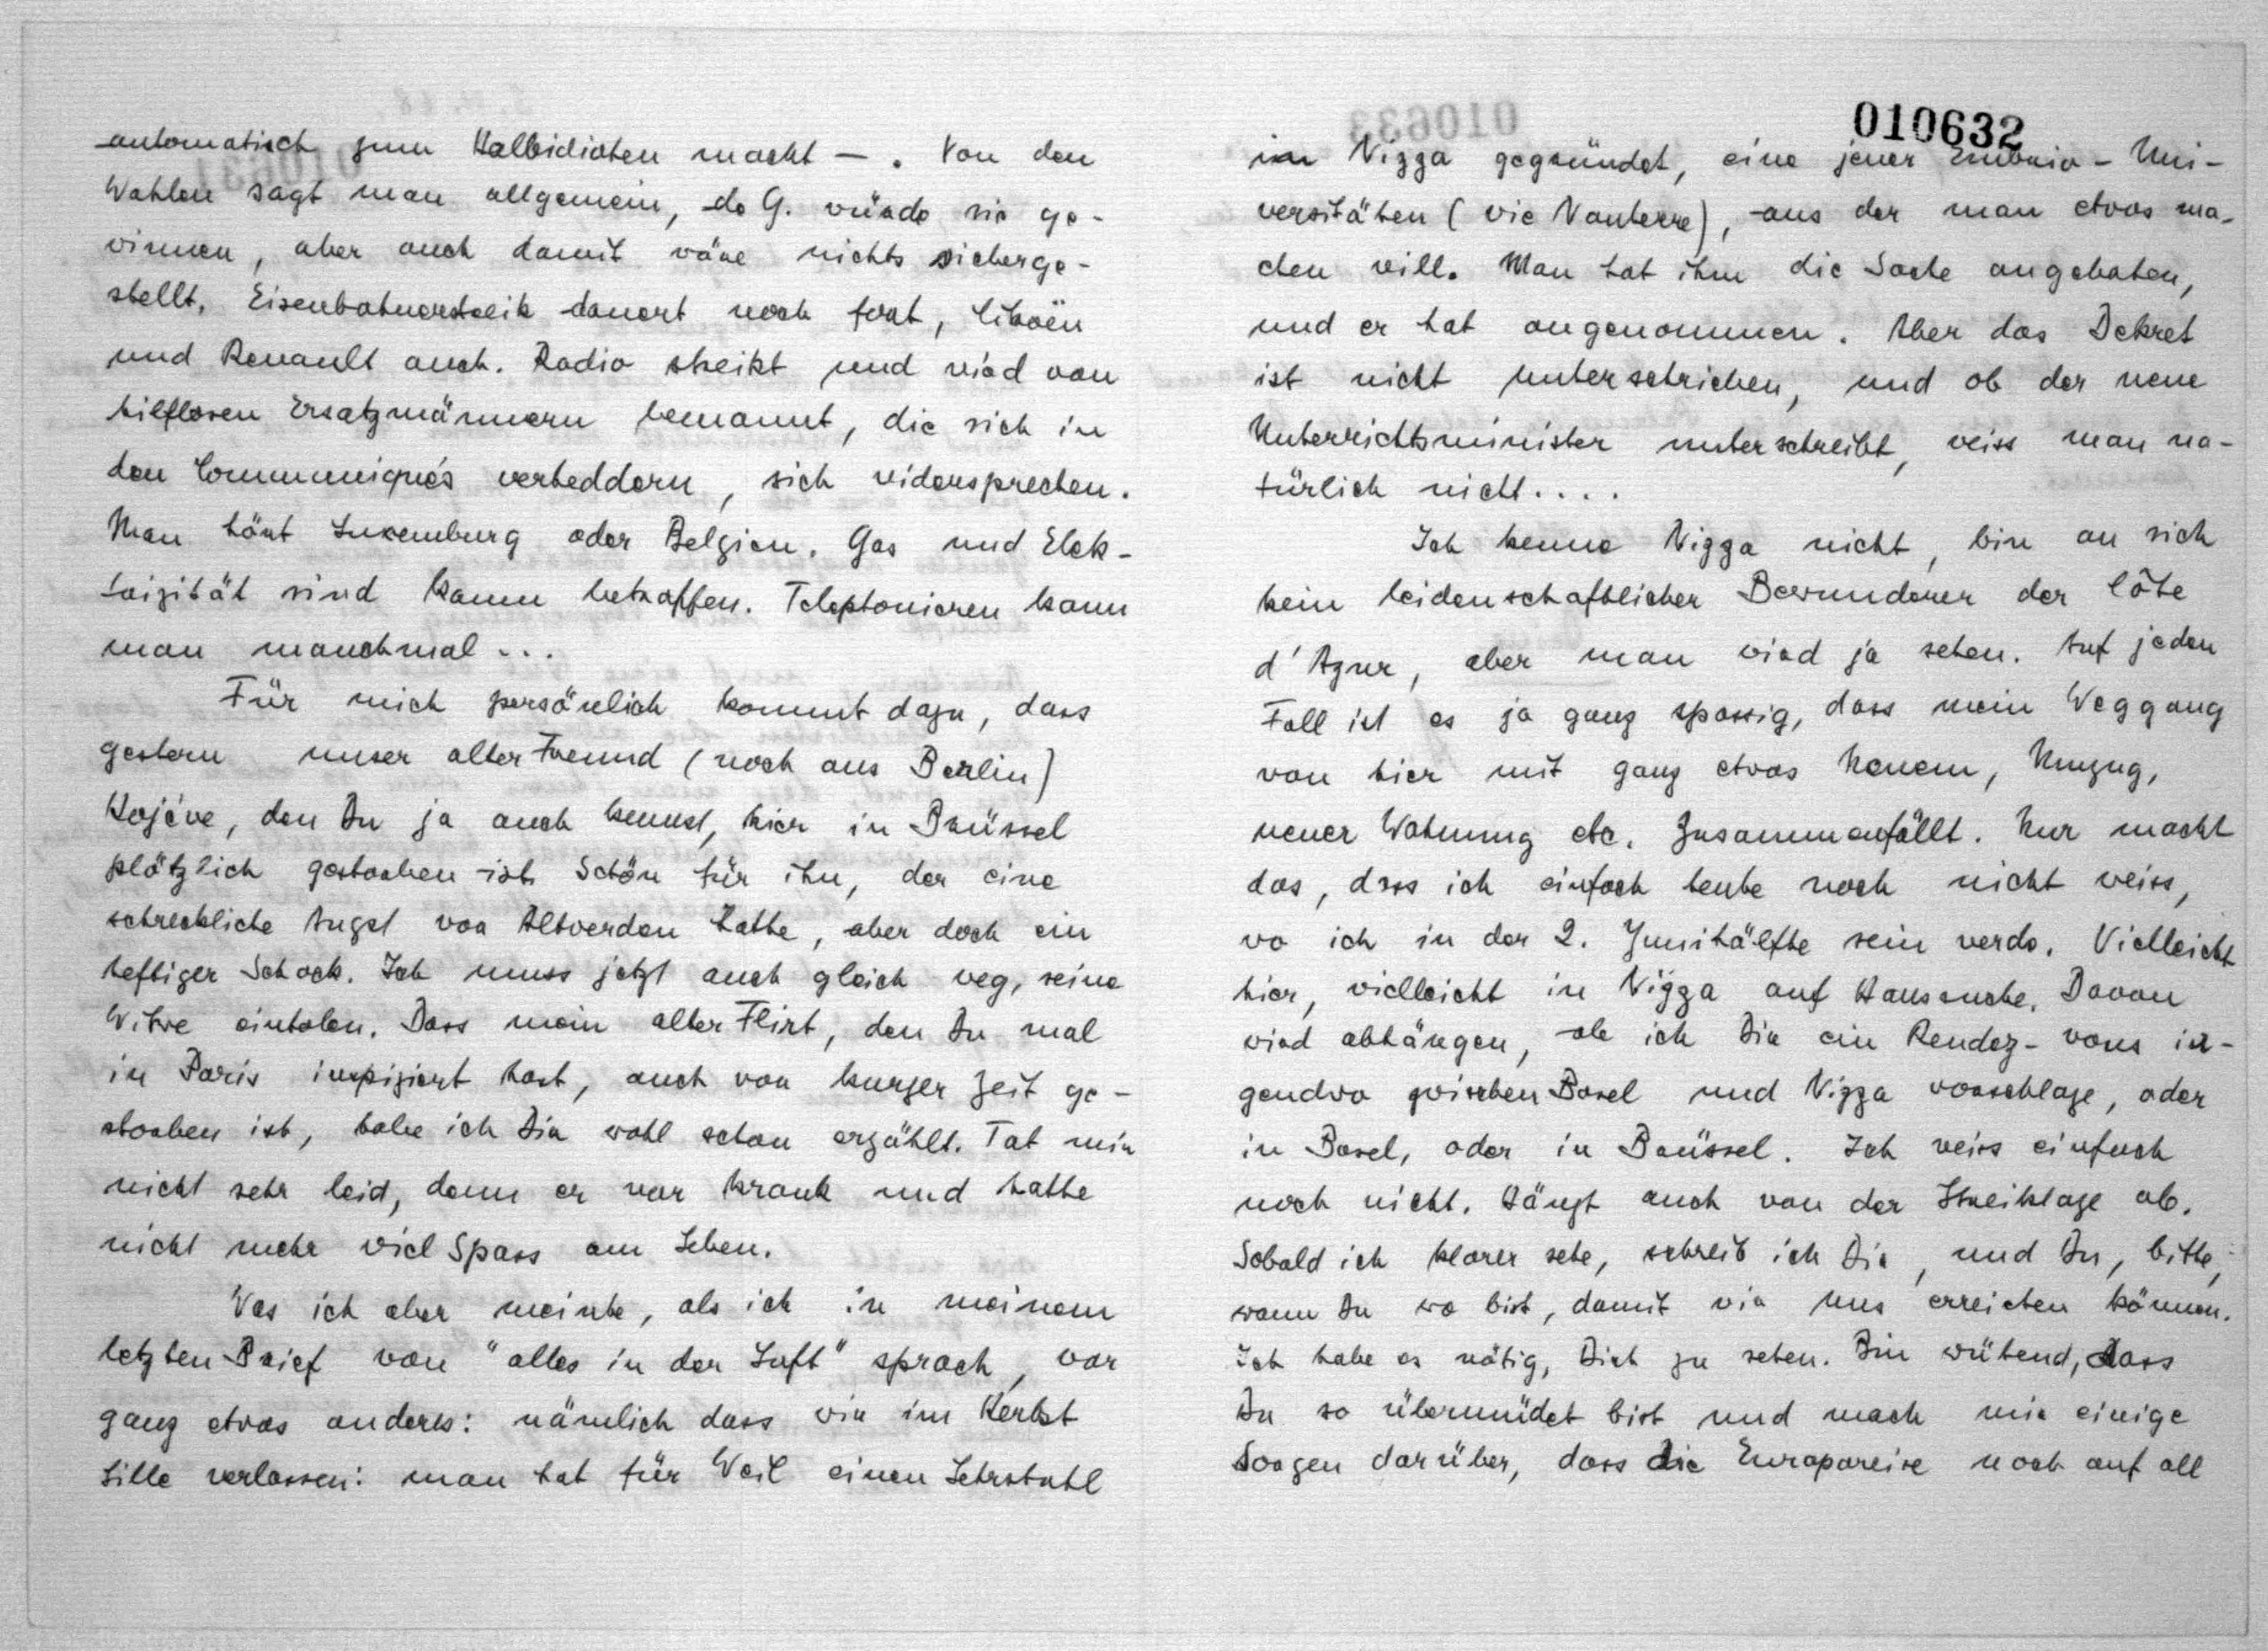 automatisch zum Halbidioten macht — . Von den
Wahlen sagt man allgemein, de G. würde sie ge-
winnen, aber auch damit wäre nichts sicherge-
stellt. Eisenbahnerstreik dauert noch fort, Citroën
und Renault auch. Radio streikt und wird von
hilflosen Ersatzmännern bemannt, die sich in
den Communiqués verheddern, sich widersprechen.
Man hört Luxemburg oder Belgien. Gas und Elek-
trizität sind kaum betroffen. Telephonieren kann
man manchmal ...
Für mich persönlich kommt dazu, dass
gestern unser alter Freund (noch aus Berlin)
Kojève, den Du ja auch kennst, hier in Brüssel
plötzlich gestorben ist. Schön für ihn, der eine
schreckliche Angst vor Altwerden hatte, aber doch ein
heftiger Schock. Ich muss jetzt auch gleich weg, seine
Witwe einholen. Dass mein alter Flirt, den Du mal
in Paris inspiziert hast, auch vor kurzer Zeit ge-
storben ist, habe ich Dir wohl schon erzählt. Tat mir
nicht sehr leid, denn er war krank und hatte
nicht mehr viel Spass am Leben.
Was ich aber meinte, als ich in meinem
letzten Brief von "alles in der Luft" sprach, war
ganz etwas anderes: nämlich dass wir im Herbst
Lille verlassen: man hat für Weil einen Lehrstuhl
010632
in Nizza gegründet, eine jener Embryo-Uni-
versitäten (wie Nanterre), aus der man etwas ma-
chen will. Man hat ihm die Sache angeboten,
und er hat angenommen. Aber das Dekret
ist nicht unterschrieben, und ob der neue
Unterrichtsminister unterschreibt, weiss man na-
türlich nicht....
Ich kenne Nizza nicht, bin an sich
kein leidenschaftlicher Bewunderer der Côte
d'Azur, aber man wird ja sehen. Auf jeden
Fall ist es ja ganz spassig, dass mein Weggang
von hier mit ganz etwas Neuem, Umzug,
neuer Wohnung etc. zusammenfällt. Nur macht
das, dass ich einfach heute noch nicht weiss,
wo ich in der 2. Junihälfte sein werde. Vielleicht
hier, vielleicht in Nizza auf Haussuche. Davon
wird abhängen, ob ich Dir ein Rendez-vous ir-
gendwo zwischen Basel und Nizza vorschlage, oder
in Basel, oder in Brüssel. Ich weiss einfach
noch nicht. Hängt auch von der Streiklage ab.
Sobald ich klarer sehe, schreib ich Dir, und Du, bitte,
wann Du wo bist, damit wir uns erreichen können.
Ich habe es nötig, Dich zu sehen. Bin wütend, dass
Du so übermüdet bist und mach mir einige
Sorgen darüber, dass die Europareise noch auf all